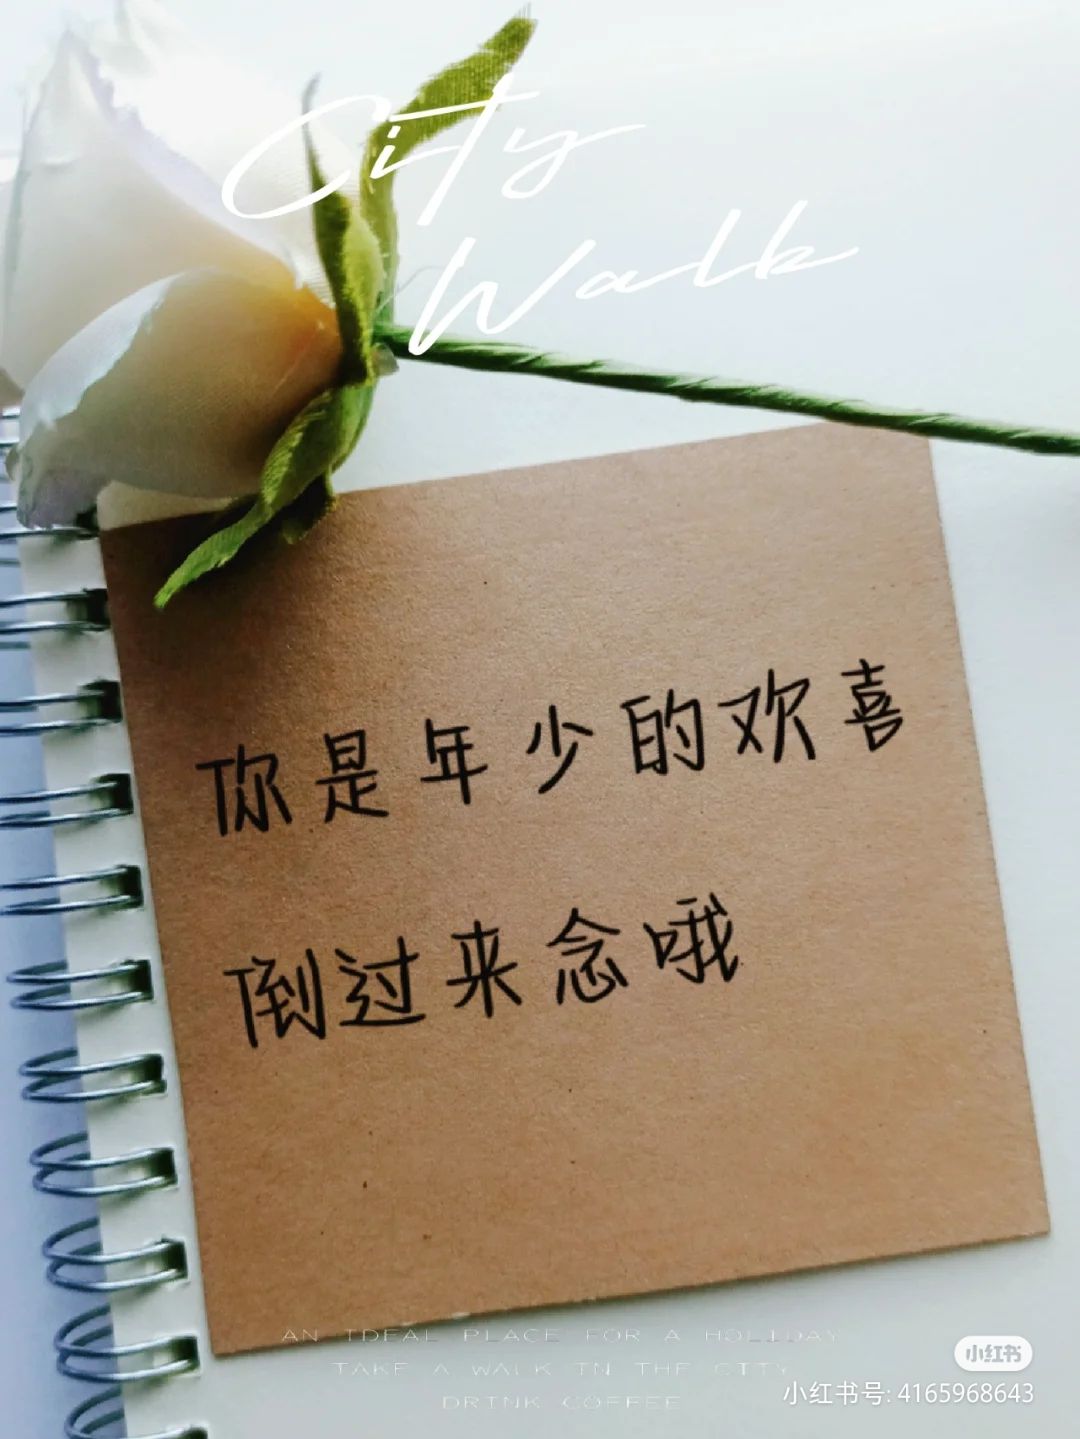 City
Walk
你是年少的欢喜
倒过来念哦
AN IDEAL PLACE FOR A HOLIDAY
TAKE A WALK IN THE CITY
DRINK COFFEE
小红书
小红书号: 4165968643